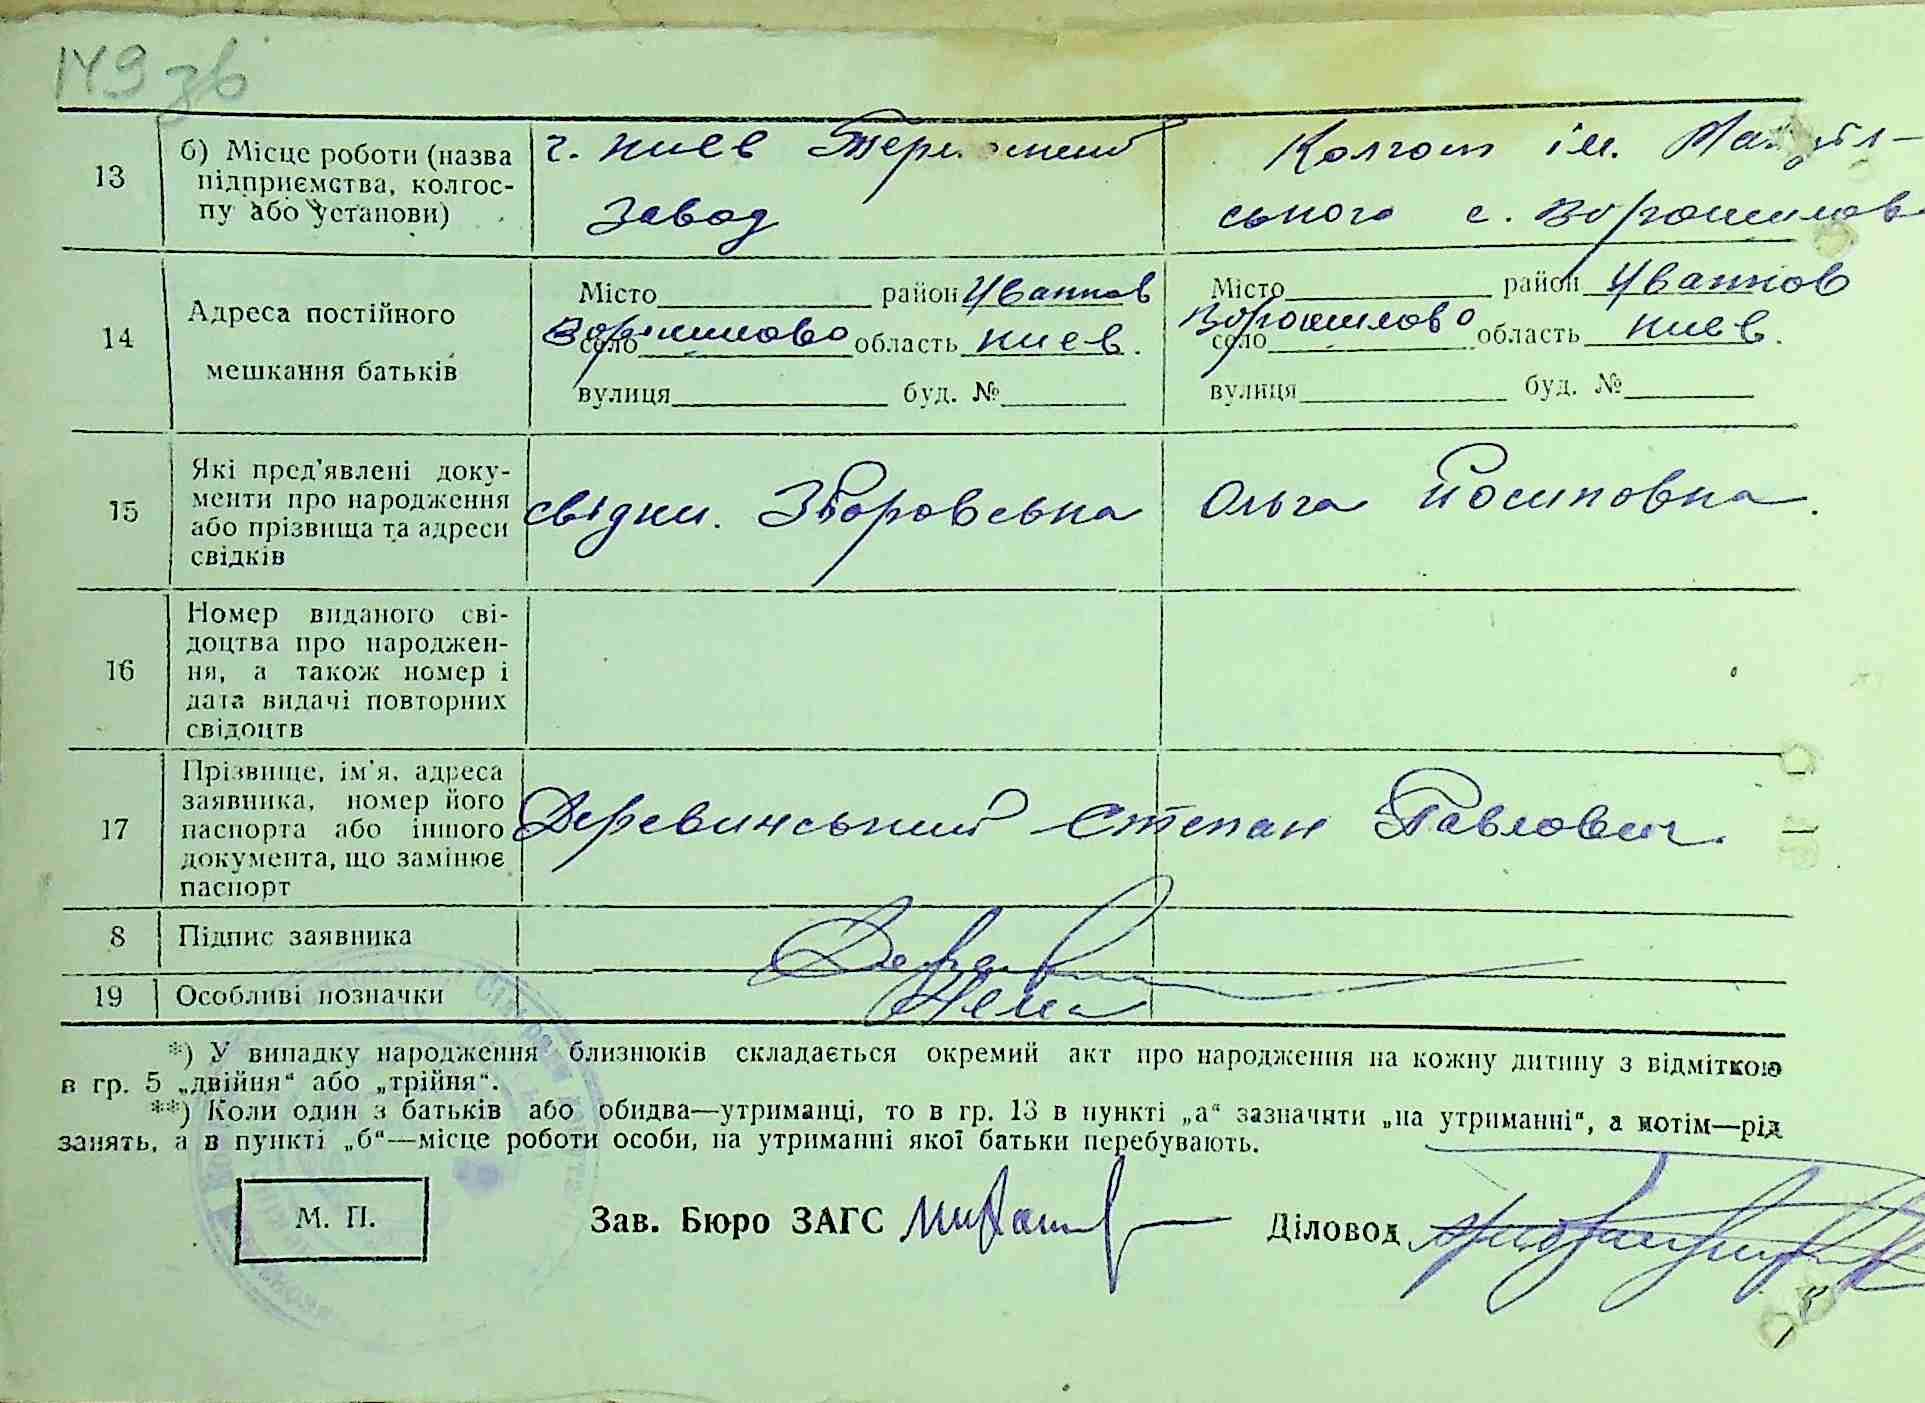 149 зв
13
б) Місце роботи (назва підприємства, колгоспу або установи)
г. Киев
Завод
Колгосп ім.
ського с. Ворошилов
14
Адреса постійного
мешкання батьків
Місто район Иванков
Ворошилово село область Киев.
вулиця буд. №
Місто район Иванков
Ворошилово село область Киев.
вулиця буд. №
15
Які пред'явлені документи про народження
або прізвища та адреси
свідків
свідки. Зборовська Ольга Йосиповна.
16
Номер виданого свідоцтва про народження, а також номер і
дата видачі повторних
свідоцтв
17
Прізвище, ім'я, адреса
заявника, номер його
паспорта або іншого
документа, що замінює
паспорт
Деревинський Степан Павлович.
8
Підпис заявника
19
Особливі позначки
Нема
*) У випадку народження близнюків складається окремий акт про народження на кожну дитину з відміткою
в гр. 5 „двійня“ або „трійня“.
**) Коли один з батьків або обидва—утриманці, то в гр. 13 в пункті „а“ зазначити „на утриманні“, а потім—рід
занять, а в пункті „б“—місце роботи особи, на утриманні якої батьки перебувають.
М. П.
Зав. Бюро ЗАГС
Діловод